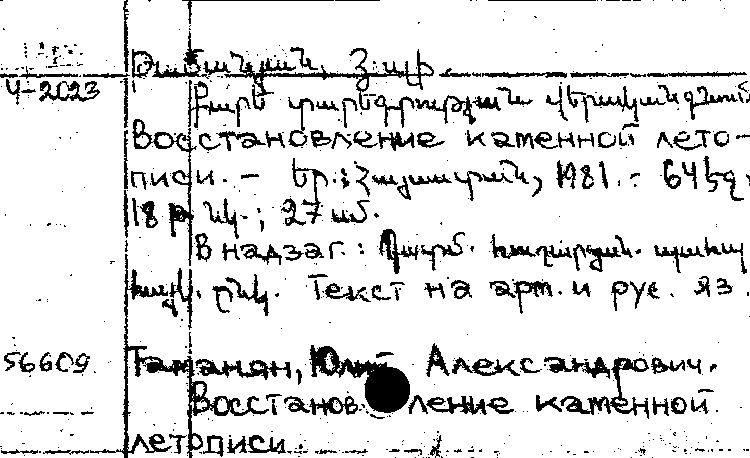 Арм.
Թամանյան, Յ. Ալ.
Ч-2023
Քարե տարեգրության վերականգնում
Восстановление каменной лето-
писи. – Եր.: Հայաստան, 1981. – 64 էջ,
18 թ նկ.; 27 սմ.
В надзаг.: Պատմ. հուշ
հայկ. ընկ. Текст на арм. и рус. яз.
56609
Таманян, Юлий Александрович.
Восстановление каменной
летописи.